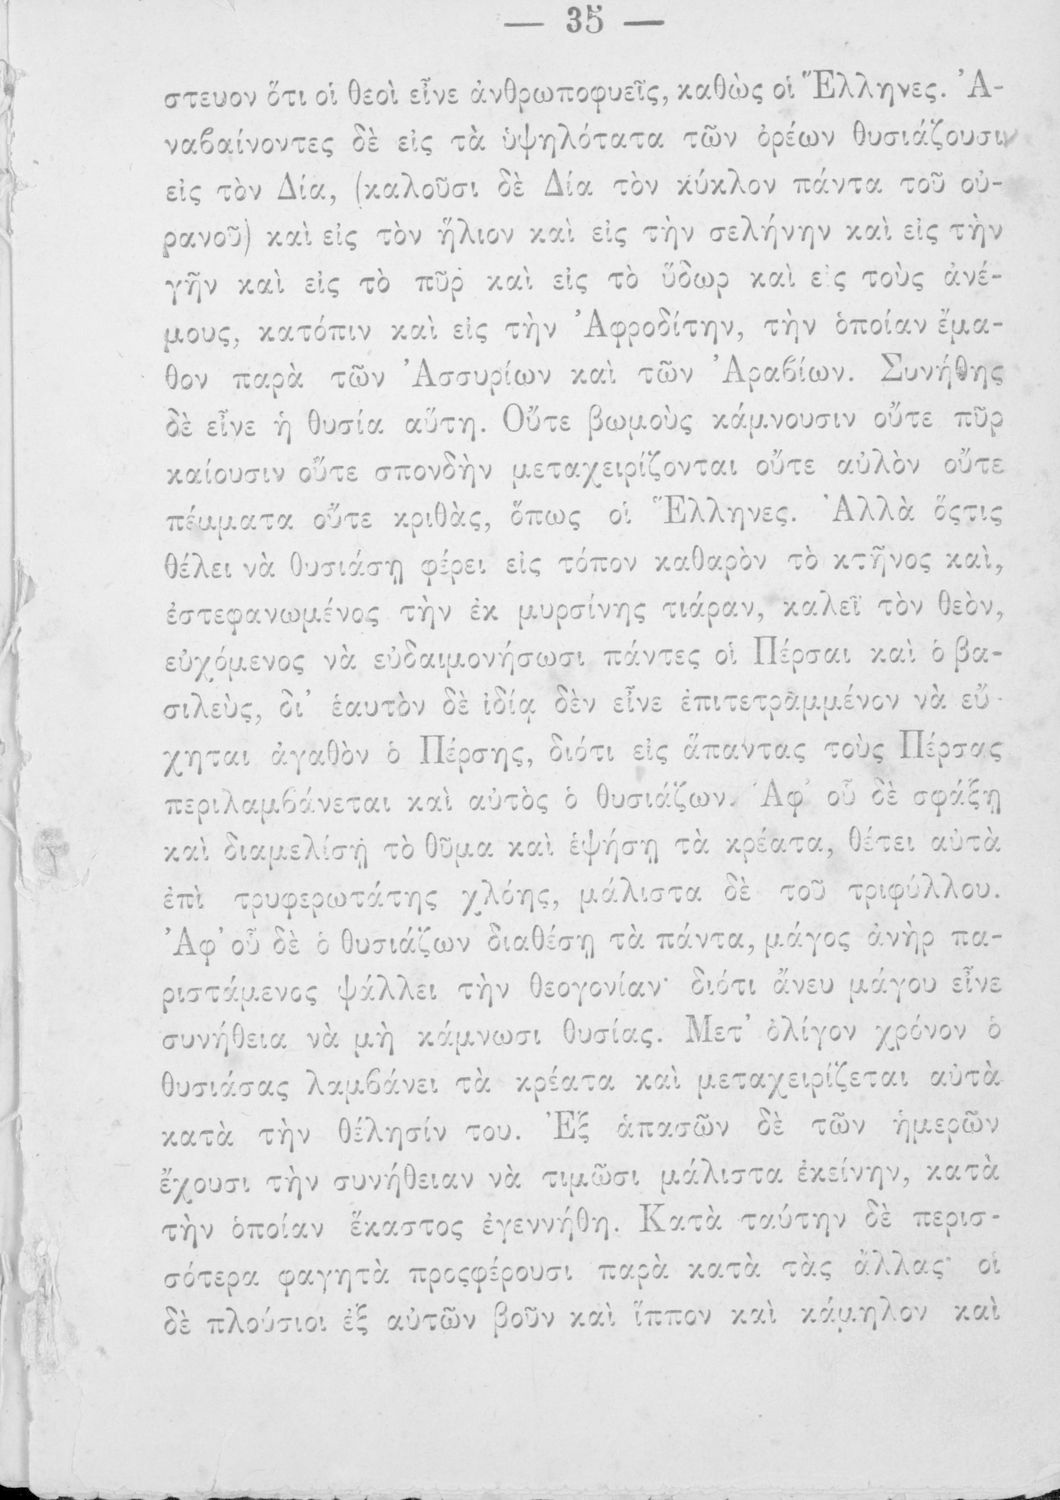 — 35 —
στευον ὅτι οἱ θεοὶ εἶνε ἀνθρωποφυεῖς, καθὼς οἱ Ἕλληνες. Ἀ-
ναβαίνοντες δὲ εἰς τὰ ὑψηλότατα τῶν ὀρέων θυσιάζουσι
εἰς τὸν Δία, (καλοῦσι δὲ Δία τὸν κύκλον πάντα τοῦ οὐ-
ρανοῦ) καὶ εἰς τὸν ἥλιον καὶ εἰς τὴν σελήνην καὶ εἰς τὴν
γῆν καὶ εἰς τὸ πῦρ καὶ εἰς τὸ ὕδωρ καὶ εἰς τοὺς ἀνέ-
μους, κατόπιν καὶ εἰς τὴν Ἀφροδίτην, τὴν ὁποίαν ἔμα-
θον παρὰ τῶν Ἀσσυρίων καὶ τῶν Ἀραβίων. Συνήθης
δὲ εἶνε ἡ θυσία αὕτη. Οὔτε βωμοὺς κάμνουσιν οὔτε πῦρ
καίουσιν οὔτε σπονδὴν μεταχειρίζονται οὔτε αὐλὸν οὔτε
πέμματα οὔτε κριθὰς, ὅπως οἱ Ἕλληνες. Ἀλλὰ ὅςτις
θέλει νὰ θυσιάσῃ φέρει εἰς τόπον καθαρὸν τὸ κτῆνος καὶ,
ἐστεφανωμένος τὴν ἐκ μυρσίνης τιάραν, καλεῖ τὸν θεὸν,
εὐχόμενος νὰ εὐδαιμονήσωσι πάντες οἱ Πέρσαι καὶ ὁ βα-
σιλεὺς, δι' ἑαυτὸν δὲ ἰδίᾳ δὲν εἶνε ἐπιτετραμμένον νὰ εὔ-
χηται ἀγαθὸν ὁ Πέρσης, διότι εἰς ἅπαντας τοὺς Πέρσας
περιλαμβάνεται καὶ αὐτὸς ὁ θυσιάζων. Ἀφ' οὗ δὲ σφάξῃ
καὶ διαμελίσῃ τὸ θῦμα καὶ ἑψήσῃ τὰ κρέατα, θέτει αὐτὰ
ἐπὶ τρυφερωτάτης χλόης, μάλιστα δὲ τοῦ τριφύλλου.
Ἀφ' οὗ δὲ ὁ θυσιάζων διαθέσῃ τὰ πάντα, μάγος ἀνὴρ πα-
ριστάμενος ψάλλει τὴν θεογονίαν· διότι ἄνευ μάγου εἶνε
συνήθεια νὰ μὴ κάμνωσι θυσίας. Μετ' ὀλίγον χρόνον ὁ
θυσιάσας λαμβάνει τὰ κρέατα καὶ μεταχειρίζεται αὐτὰ
κατὰ τὴν θέλησίν του. Ἐξ ἁπασῶν δὲ τῶν ἡμερῶν
ἔχουσι τὴν συνήθειαν νὰ τιμῶσι μάλιστα ἐκείνην, κατὰ
τὴν ὁποίαν ἕκαστος ἐγεννήθη. Κατὰ ταύτην δὲ περισ-
σότερα φαγητὰ προςφέρουσι παρὰ κατὰ τὰς ἄλλας· οἱ
δὲ πλούσιοι ἐξ αὐτῶν βοῦν καὶ ἵππον καὶ κάμηλον καὶ